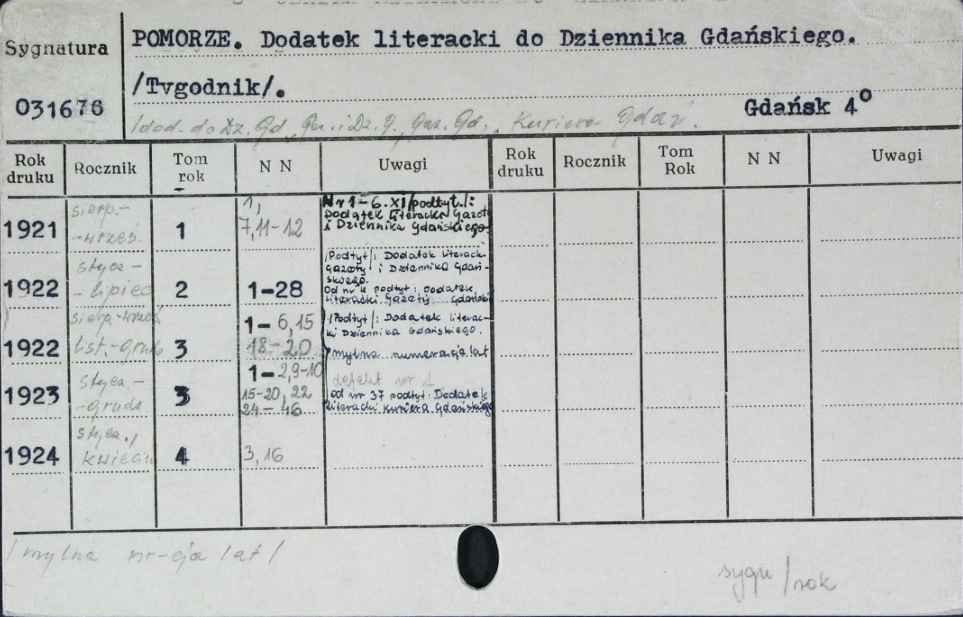 Sygnatura
POMORZE. Dodatek literacki do Dziennika Gdańskiego.
/Tygodnik/.
031676
Gdańsk 4°
/dod. do Dz. Gd., Gaz. i Dz. G., Gaz. Gd., Kuriera Gdań.
Rok druku Rocznik Tom rok N N Uwagi Rok druku Rocznik Tom Rok N N Uwagi
1921 sierp.- -wrzes. 1 1, 7,11-12 Nr 1-6. XI/podtyt./:
Dodatek Literacki Gazety
i Dziennika Gdańskiego
1922 stycz.- -lipiec 2 1-28 /Podtyt/: Dodatek literack.
Gazety i Dziennika Gdań-
skiego.
Od nr 4 podtyt: dodatek
literacki Gazety Gdański
1922 sierp-wrzes list.-grud. 3 1-6,15 18-20 /Podtyt/: Dodatek literac-
ki Dziennika Gdańskiego.
mylna numeracja lat
1923 stycz.- -grudz 3 1-2,9-10 15-20, 22 24-46 defekt nr 1
od nr 37 podtyt: Dodatek
literacki Kuriera Gdańskiego
1924 stycz., kwiecień 4 3,16
/mylna nr-cja lat/
sygn/rok